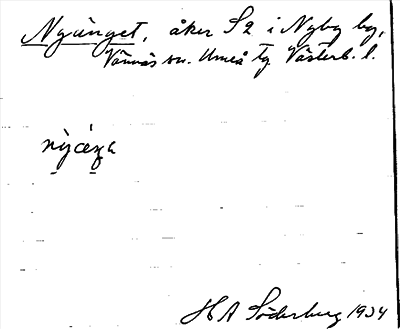 Nyänget, åker S2 i Nyby by,
Vännäs sn. Umeå tg. Västerb. l.
H A Söderberg 1934